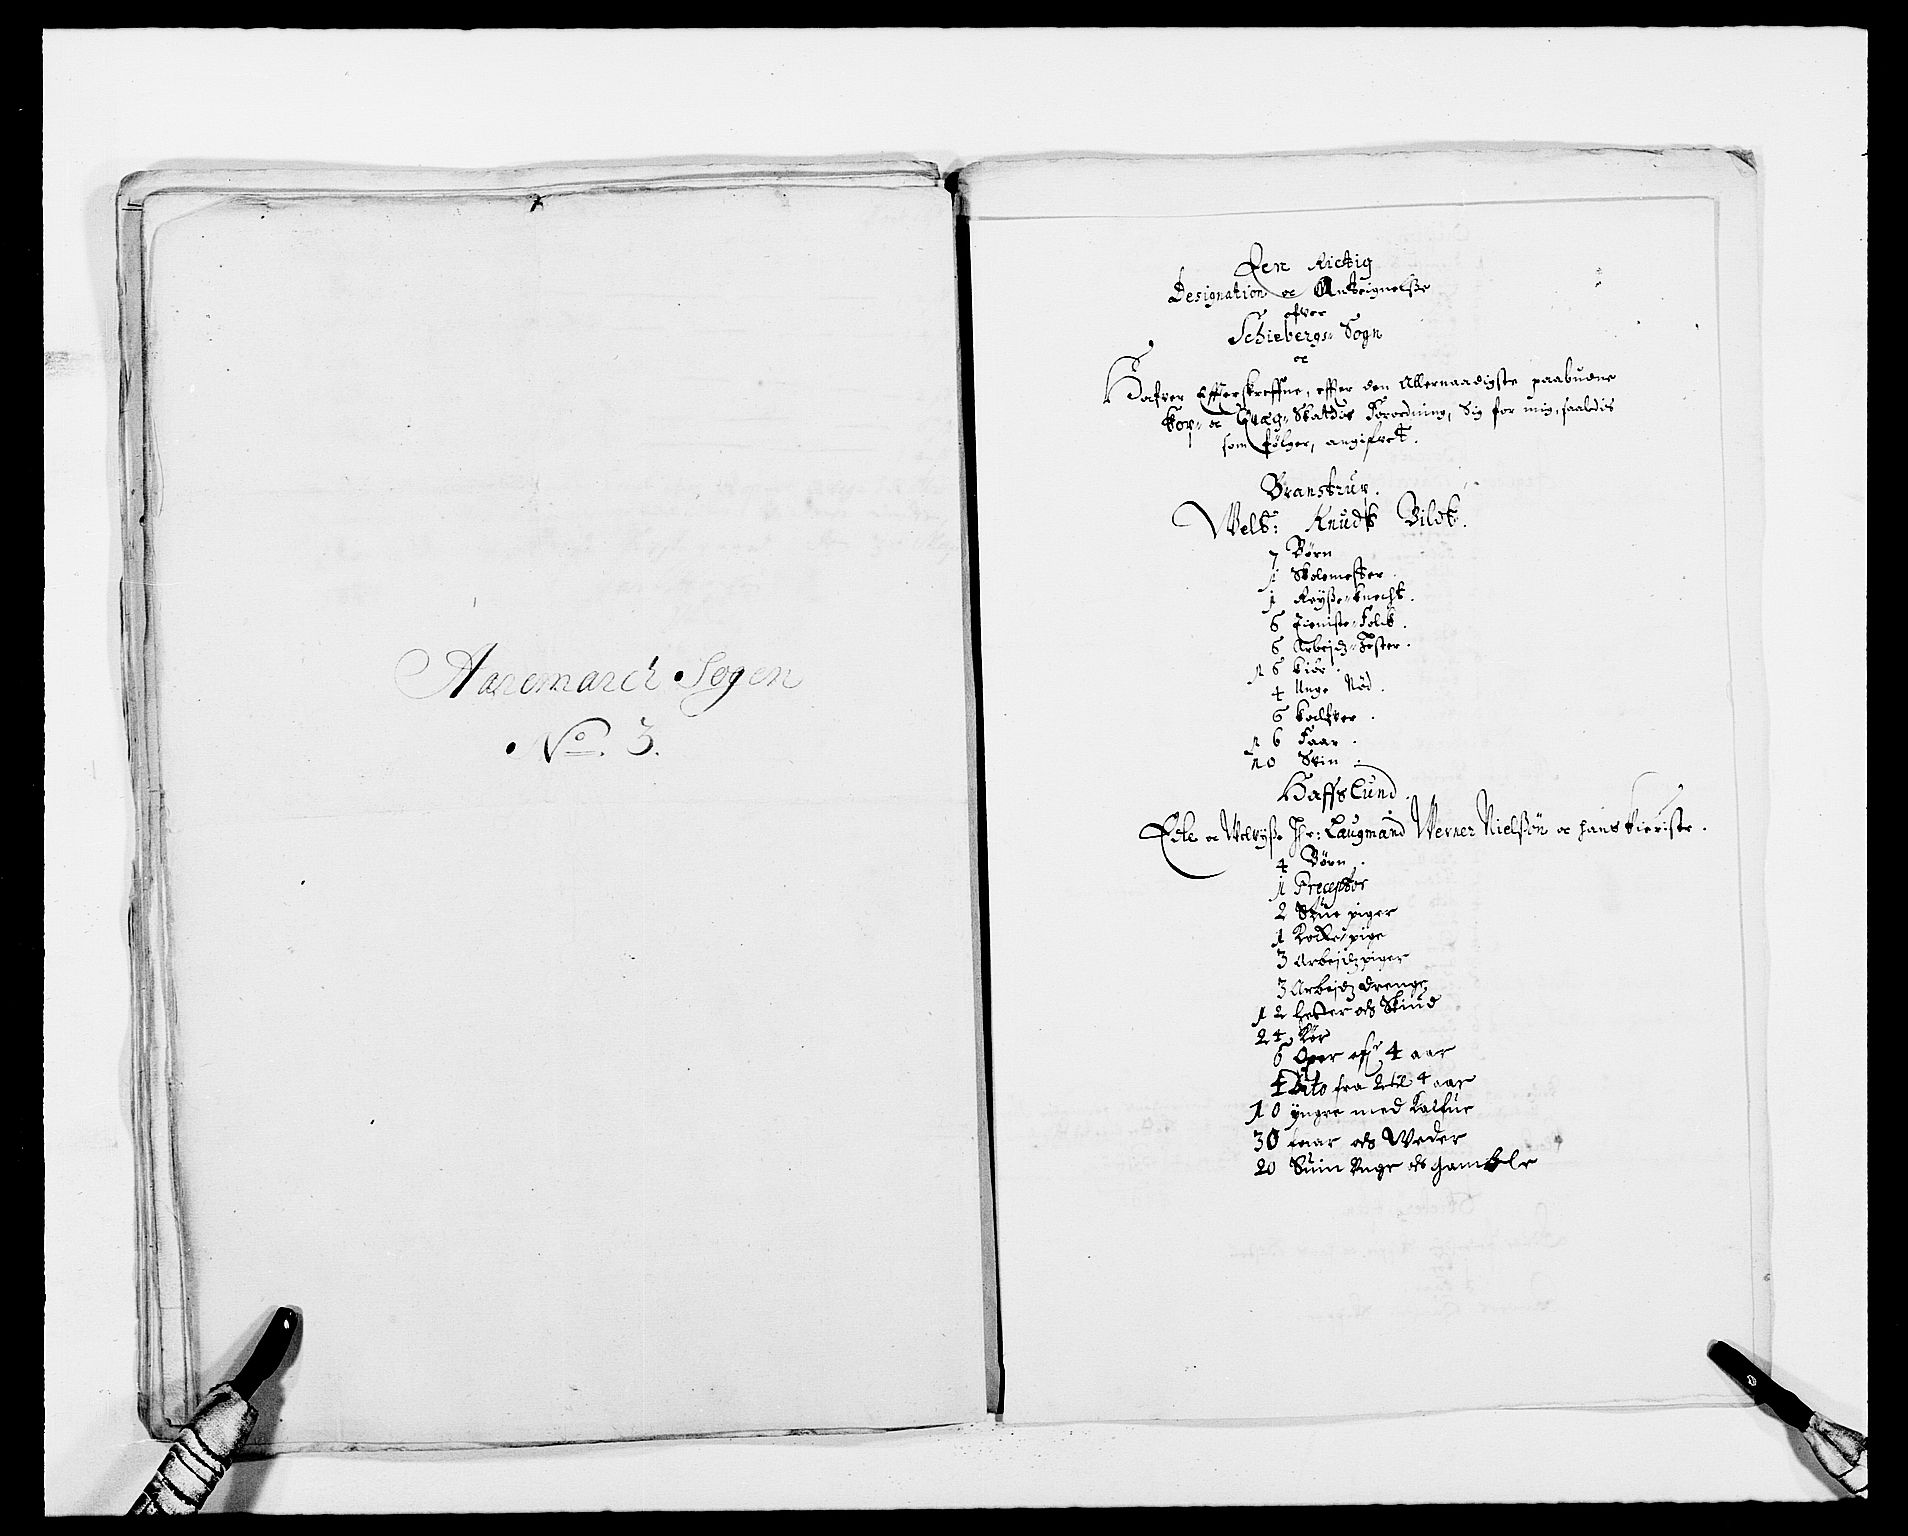 Aaremarck Sogen
No. 3.
Een Rictig
Designation oc Anteignelsse
ofver
Schiebergs-Sogn
oc
Hafver Effterskreffne, effter den Allernaadigste paabudne
Kop- oc Qvæg-Skattis Forordning, Sig for mig, saaledis
som følger, angifvet.
Branstrup.
Welb: Knudt Bildt.
7 Børn
1 Skolemester.
1 Reysse-Knecht.
6 Tieniste-Folck.
6 Arbejdz-Hester.
16 Kiør.
4 Unge Nød.
6 Kalfver.
16 Faar.
10 Svin.
Haffslund.
Edle oc Welvysse Hr: Laugmand Werner Nielssøn oc hans Kieriste.
4 Børn.
1 Preceptor
2 Stue piger
1 Kocke pige
3 Arbejdz piger
3 Arbejdz drenge
12 hester och Skiud
24 Kør
6 Oxer ofr 4 aar
4 Dito fra 2 til 4 aar
10 yngre med Kalfue
30 faar och Weder
20 Suin Unge och gamble